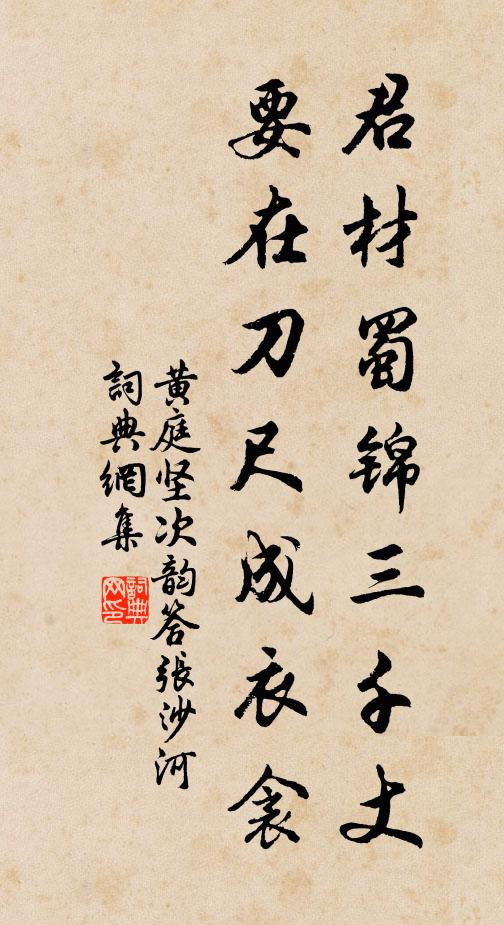 君材蜀錦三千丈
要在刀尺成衣衾
黄庭坚次韵答張沙河
詞典網集
詞典网印